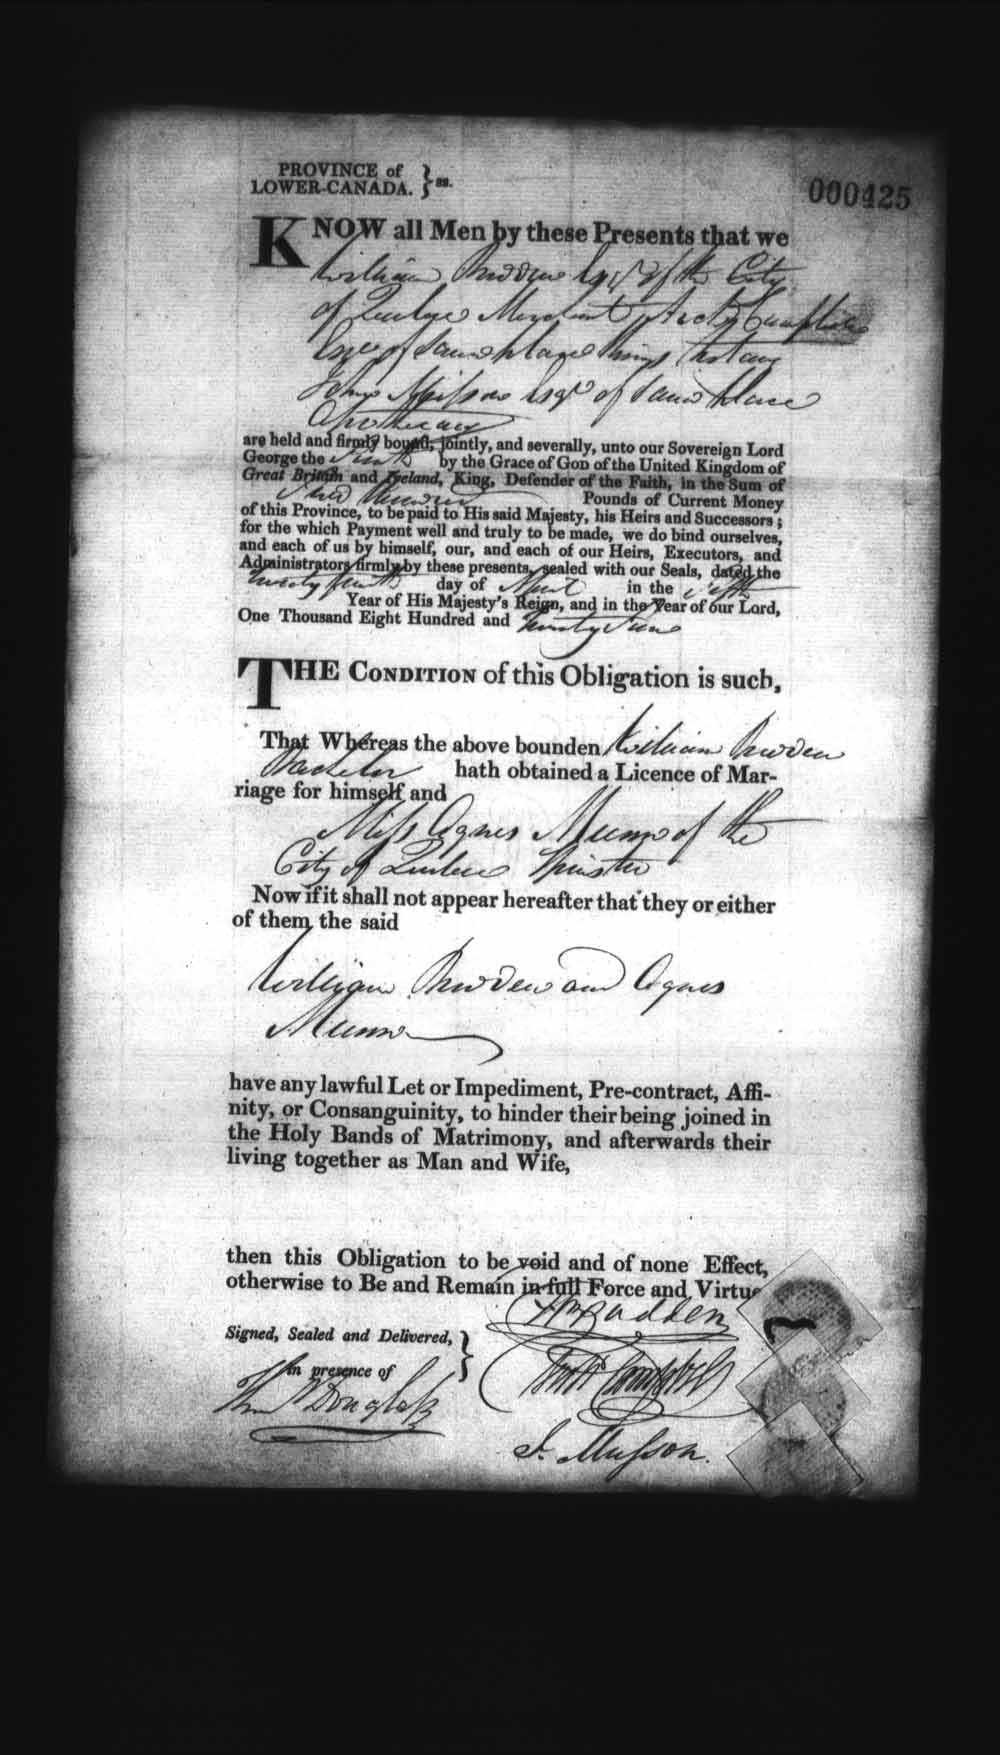 PROVINCE of
LOWER-CANADA. } ss.
000425
KNOW all Men by these Presents that we
William Budden Esqr of the City
of Quebec Merchant, Archd Campbell
Esqr of same place Notary
Musson Esqr of same place
Apothecary
are held and firmly bound, jointly, and severally, unto our Sovereign Lord
George the by the Grace of GOD of the United Kingdom of
Great Britain and Ireland, King, Defender of the Faith, in the Sum of
Hundred Pounds of Current Money
of this Province, to be paid to His said Majesty, his Heirs and Successors;
for the which Payment well and truly to be made, we do bind ourselves,
and each of us by himself, our, and each of our Heirs, Executors, and
Administrators firmly by these presents, sealed with our Seals, dated the
day of in the fifth
Year of His Majesty's Reign, and in the Year of our Lord,
One Thousand Eight Hundred and Twenty
THE CONDITION of this Obligation is such,
That Whereas the above bounden William Budden
Bachelor hath obtained a Licence of Mar-
riage for himself and
Miss Agnes Munro of the
City of Quebec Spinster
Now if it shall not appear hereafter that they or either
of them the said
William Budden and Agnes
Munro
have any lawful Let or Impediment, Pre-contract, Affi-
nity, or Consanguinity, to hinder their being joined in
the Holy Bands of Matrimony, and afterwards their
living together as Man and Wife,
then this Obligation to be void and of none Effect,
otherwise to Be and Remain in full Force and Virtue
Wm Budden
Signed, Sealed and Delivered, }
in presence of
Archd Campbell
Douglass
J. Musson.